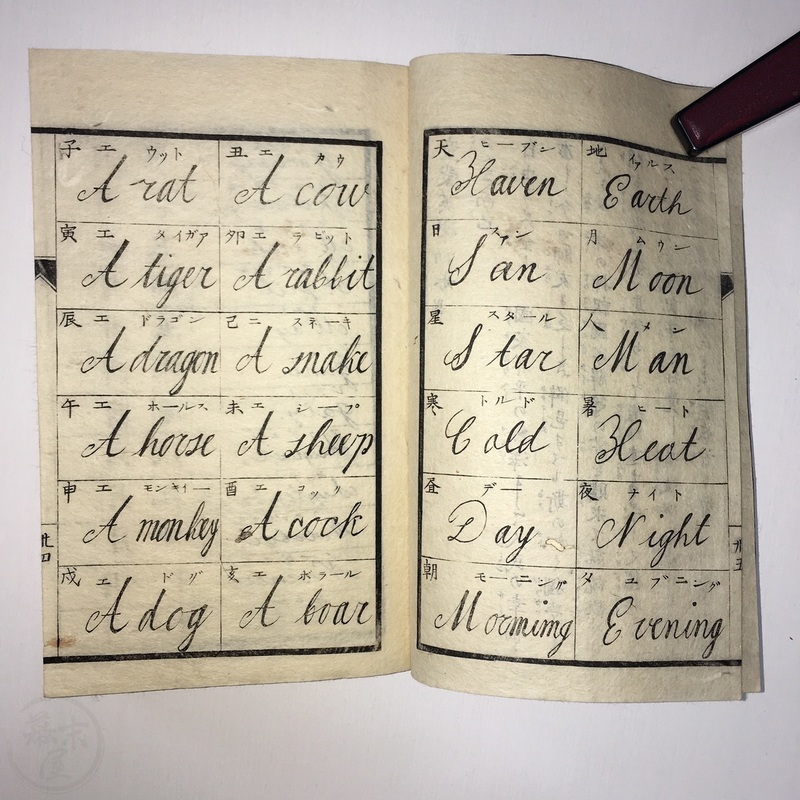 子 エ ウット 丑 エ カウ
A rat A cow
寅 エ タイガァ 卯 エ ラビット
A tiger A rabbit
辰 エ ドラゴン 己 ニ スネーキ
A dragon A snake
午 エ ホールス 未 エ シープ
A horse A sheep
申 エ モンキイー 酉 エ コック
A monkey A cock
戌 エ ドグ 亥 エ ボラール
A dog A boar
廿四
天 ヒーブン 地 イァルス
Haven Earth
日 スァン 月 ムウン
San Moon
星 スタール 人 メン
Star Man
寒 トルド 暑 ヒート
Cold Heat
昼 デー 夜 ナイト
Day Night
朝 モーニング 夕 ユブニング
Mormimg Evening
廿五
幕末屋